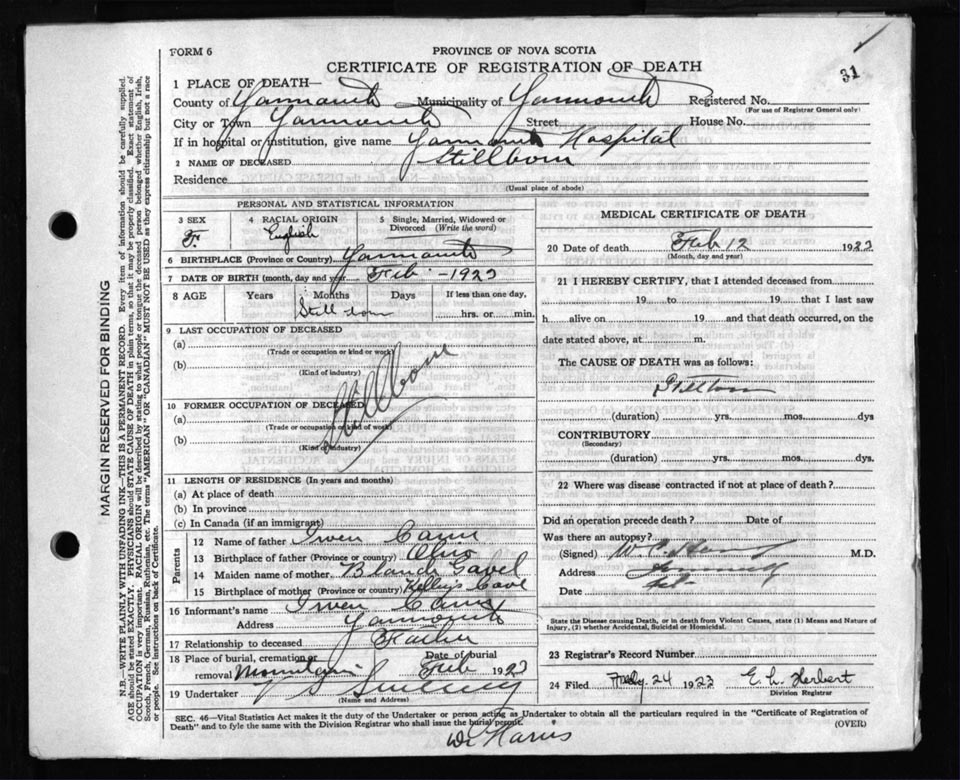 31
FORM 6
PROVINCE OF NOVA SCOTIA
CERTIFICATE OF REGISTRATION OF DEATH
1 PLACE OF DEATH—
County of Yarmouth Municipality of Yarmouth Registered No.
(For use of Registrar General only)
City or Town Yarmouth Street House No.
If in hospital or institution, give name Yarmouth Hospital
2 NAME OF DECEASED Stillborn
Residence
(Usual place of abode)
PERSONAL AND STATISTICAL INFORMATION
3 SEX F
4 RACIAL ORIGIN English
5 Single, Married, Widowed or Divorced (Write the word)
6 BIRTHPLACE (Province or Country) Yarmouth
7 DATE OF BIRTH (month, day and year) Feb - 1923
8 AGE Years Months Days If less than one day,
Still born hrs. or min.
9 LAST OCCUPATION OF DECEASED
(a)
(Trade or occupation or kind or work)
(b)
(Kind of industry)
Stillborn
10 FORMER OCCUPATION OF DECEASED
(a)
(Trade or occupation or kind of work)
(b)
(Kind of industry)
11 LENGTH OF RESIDENCE (In years and months)
(a) At place of death
(b) In province
(c) In Canada (if an immigrant)
Parents
12 Name of father Irven Cann
13 Birthplace of father (Province or country) Ohio
14 Maiden name of mother Blanch Gavel
15 Birthplace of mother (Province or country) Kelleys Cove
16 Informant's name Irven Cann
Address Yarmouth
17 Relationship to deceased Father
18 Place of burial, cremation or removal Mountain Date of burial Feb 1923
19 Undertaker V S Sweeny
(Name and Address)
MEDICAL CERTIFICATE OF DEATH
20 Date of death Feb 12 1923
(Month, day and year)
21 I HEREBY CERTIFY, that I attended deceased from
19 to 19 that I last saw
h alive on 19 and that death occurred, on the
date stated above, at m.
The CAUSE OF DEATH was as follows:
Stillborn
(duration) yrs. mos. dys
CONTRIBUTORY
(Secondary)
(duration) yrs. mos. dys.
22 Where was disease contracted if not at place of death?
Did an operation precede death? Date of
Was there an autopsy?
(Signed) W C Harris M.D.
Address Yarmouth
Date
State the Disease causing Death, or in death from Violent Causes, state (1) Means and Nature of
Injury, (2) whether Accidental, Suicidal or Homicidal.
23 Registrar's Record Number
24 Filed 24 1923 E. L. Herbert
Division Registrar
SEC. 46—Vital Statistics Act makes it duty of the Undertaker or person acting as Undertaker to obtain all the particulars required in the "Certificate of Registration of
Death" and to file the same with the Division Registrar who shall issue the burial permit.
(OVER)
Dr Harris
MARGIN RESERVED FOR BINDING
N.B.—WRITE PLAINLY WITH UNFADING INK—THIS IS A PERMANENT RECORD. Every item of information should be carefully supplied.
AGE should be stated EXACTLY. PHYSICIANS should STATE CAUSE OF DEATH in plain terms, so that it may be properly classified. Exact statement of
OCCUPATION is very important. RACIAL ORIGIN will be described by stating to what people or tongue the deceased person belonged whether English, Irish,
Scotch, French, German, Russian, Ruthenian, etc. The terms "AMERICAN" OR "CANADIAN" MUST NOT BE USED as they express citizenship but not a race
or people. See instructions on back of Certificate.